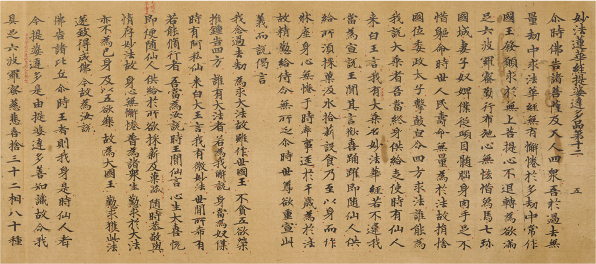 妙法蓮華經提婆達多品第十二 五
尒時佛告諸菩薩及天人四眾吾於過去無
量劫中求法華經無有懈惓於多劫中常作
國王發願求於無上菩提心不退轉為欲滿
足六波羅蜜勤行布施心無悋惜象馬七珍
國城妻子奴婢僕從頭目髓腦身肉手足不
惜軀命時世人民壽命無量為於法故捐捨
國位委政太子擊鼓宣令四方求法誰能為
我說大乘者吾當終身供給走使時有仙人
來白王言我有大乘名妙法華經若不違我
當為宣說王聞其言歡喜踊躍即隨仙人供
給所須採菓汲水拾薪設食乃至以身而作
床座身心無惓于時奉事逕於千歲為於法
故精勤給侍令無所乏尒時世尊欲重宣此
義而說偈言
我念過去劫 為求大法故 雖作世國王 不貪五欲樂
搥鍾告四方 誰有大法者 若為我解說 身當為奴僕
時有阿私仙 來白於大王 我有微妙法 世間所希有
若能修行者 吾當為汝說 時王聞仙言 心生大喜悅
即便隨仙人 供給於所須 採薪及菓蓏 隨時恭敬與
情存妙法故 身心無懈惓 普為諸眾生 勤求於大法
亦不為己身 及以五欲樂 故為大國王 勤求獲此法
遂致得成佛 今故為汝說
佛告諸比丘尒時王者則我身是時仙人者
今提婆達多是由提婆達多善知識故令我
具足六波羅蜜慈悲喜捨三十二相八十種